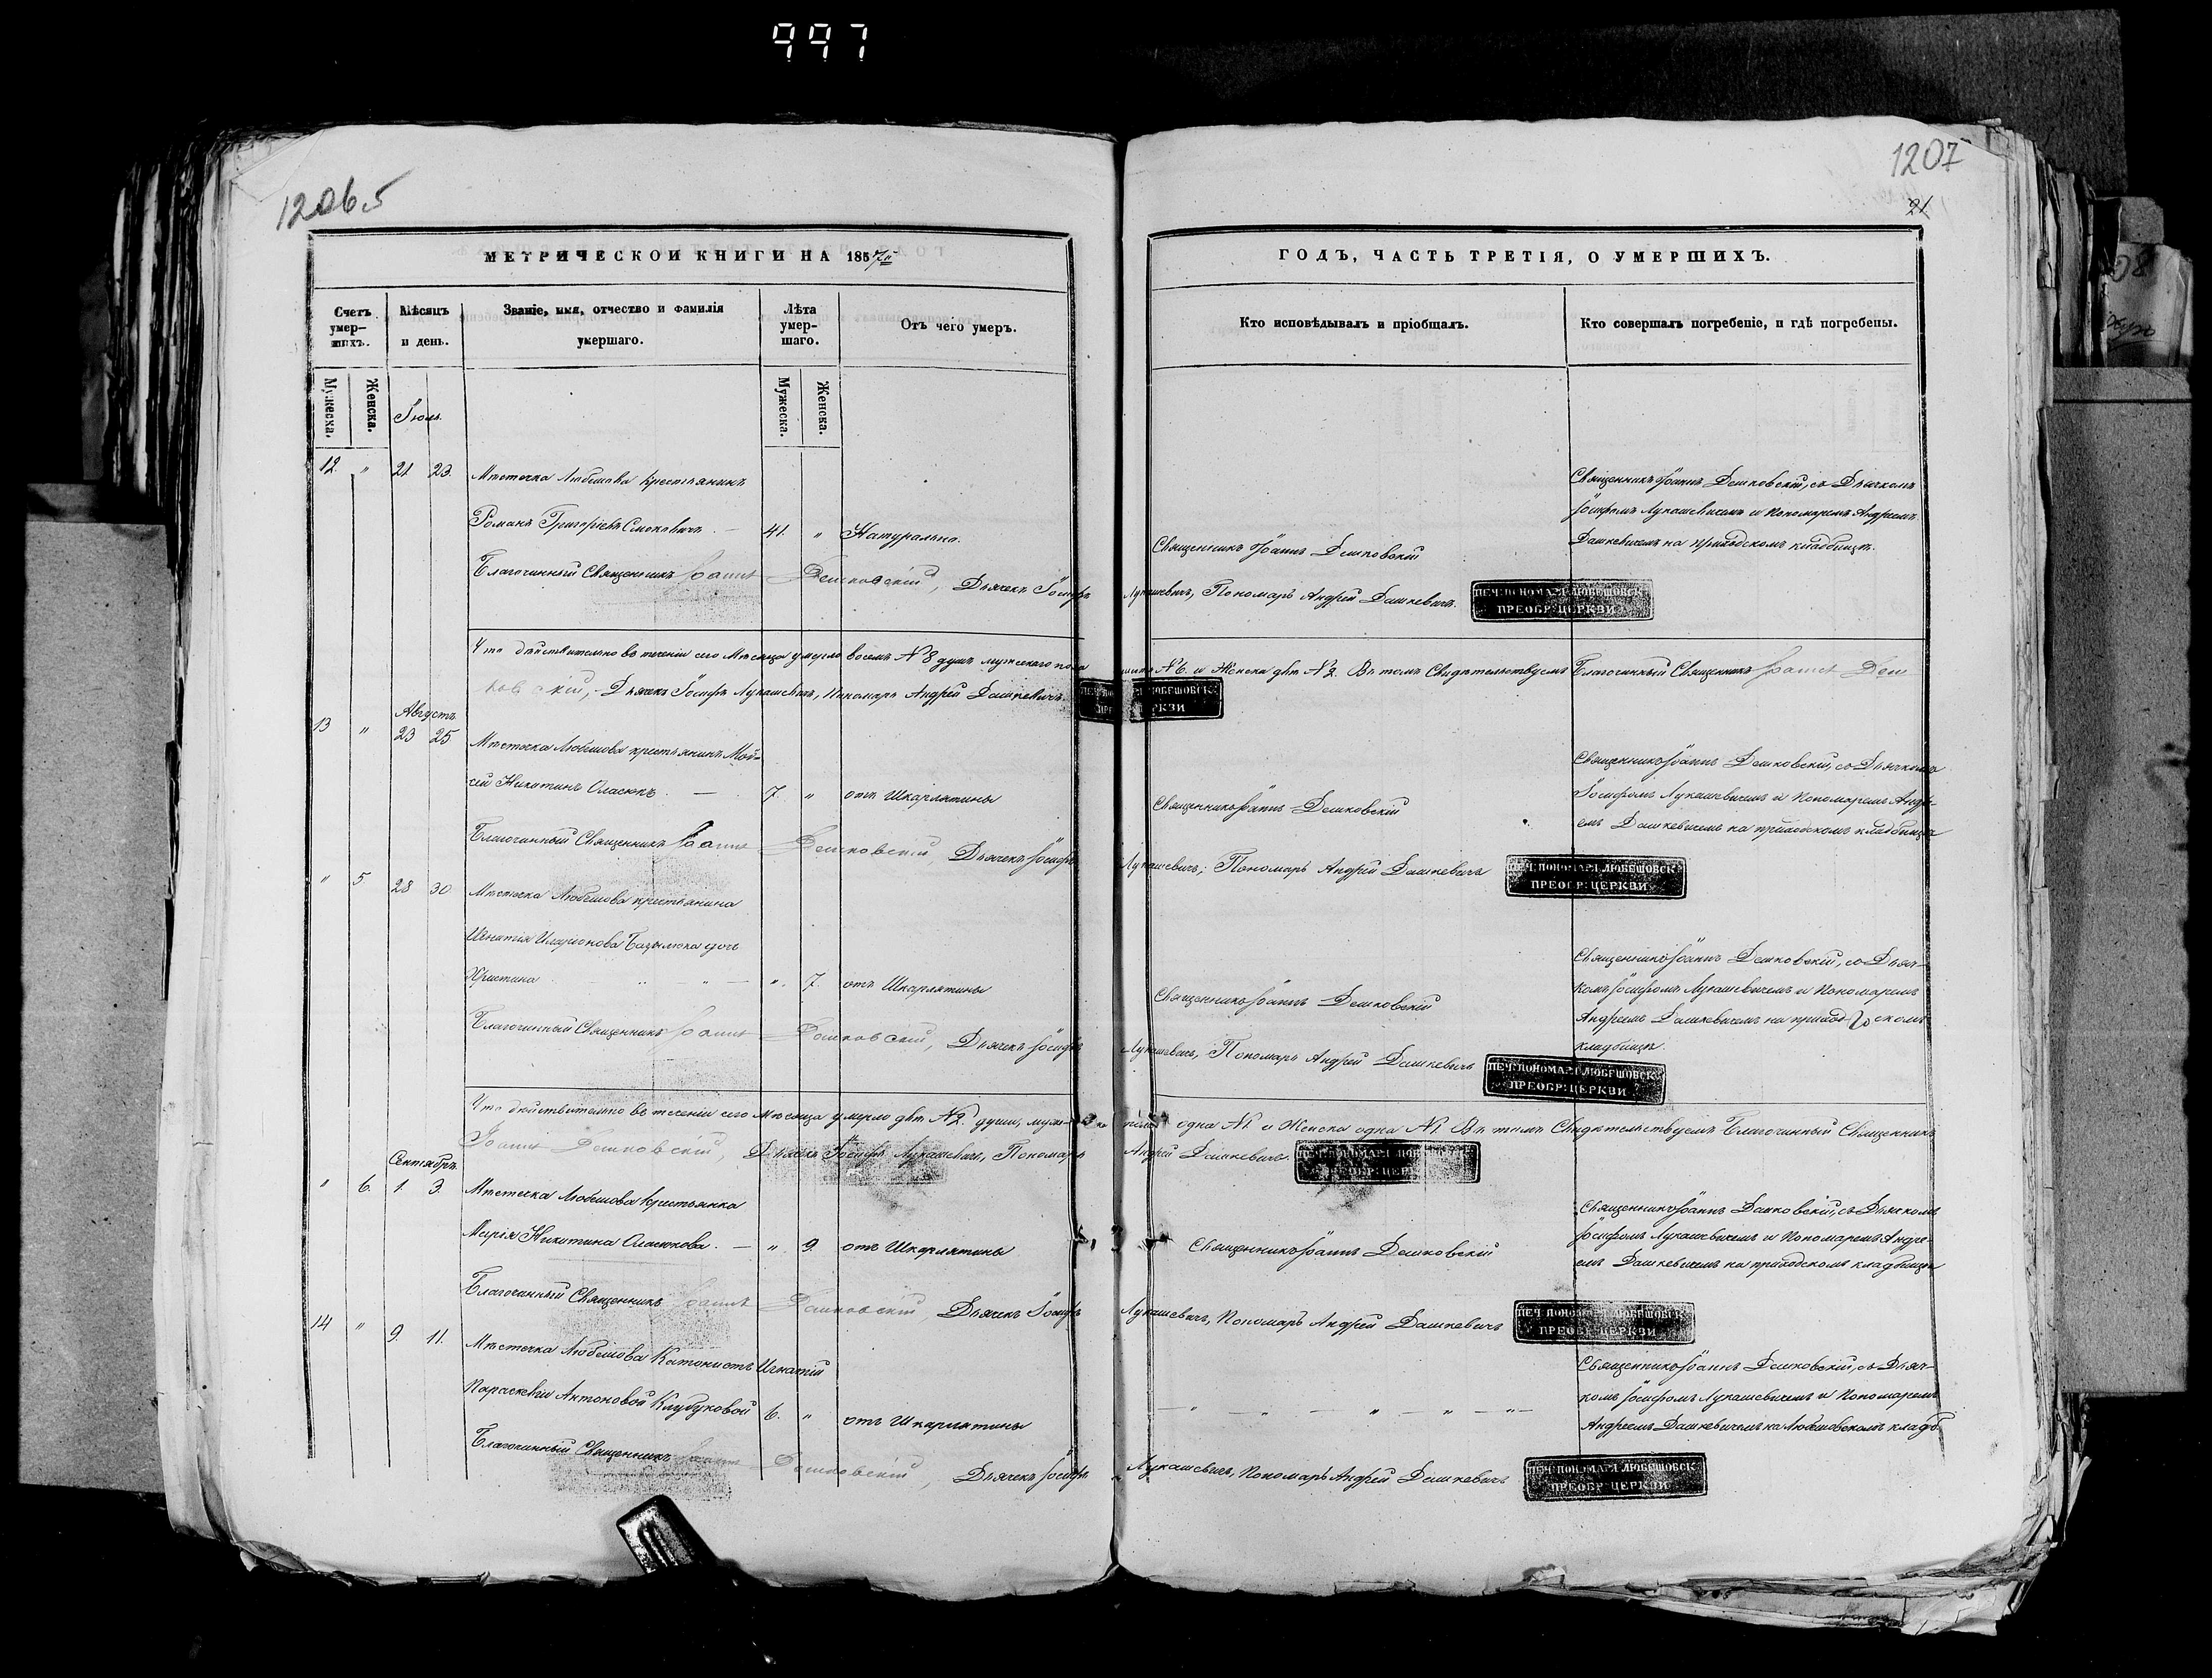 997
1206 5
1207
21
МЕТРИЧЕСКОЙ КНИГИ НА 1857й
ГОДЪ, ЧАСТЬ ТРЕТІЯ, О УМЕРШИХЪ.
Счетъ умер-шихъ.
Мѣсяцъ и день.
Званіе, имя, отчество и фамилія умершаго.
Лѣта умер-шаго.
Отъ чего умеръ.
Кто исповѣдывалъ и пріобщалъ.
Кто совершалъ погребеніе, и гдѣ погребены.
Мужеска.
Женска.
Мужеска.
Женска.
Іюль
12 " 21. 23.
Мѣстечка Любешова крестьянинъ
Романъ Григорьевъ Смоковичъ — 41. " Натурально.
Священникъ Іоаннъ Дешковскій
Священникъ Іоаннъ Дешковскій, съ Дьячкомъ
Іосифомъ Лукашевичемъ и Пономаремъ Андреемъ
Дашкевичемъ на приходскомъ кладбищѣ.
Благочинный Священникъ Іоаннъ Дешковскій, Дьячекъ Іосифъ Лукашевичъ, Пономарь Андрей Дашкевичъ.
ПЕЧ: ПОНОМАРЯ ЛЮБЕШОВСК:
ПРЕОБР: ЦЕРКВИ
Что дѣйствительно въ теченіи сего Мѣсяца умерло восемь №8 душъ мужескаго пола №6. и Женска двѣ №2. Въ томъ Свидѣтельствуемъ Благочинный Священникъ Іоаннъ Деш
ковскій, Дьячекъ Іосифъ Лукашевичъ, Пономарь Андрей Дашкевичъ.
ПЕЧ: ПОНОМАРЯ ЛЮБЕШОВСК:
ПРЕОБР: ЦЕРКВИ
Августъ
13 " 23 25
Мѣстечка Любешова крестьянинъ Мой-
сей Никитинъ Оласюкъ. — 7. " отъ Шкарлятины
Священникъ Іоаннъ Дешковскій
Священникъ Іоаннъ Дешковскій, съ Дьячкомъ
Іосифомъ Лукашевичемъ и Пономаремъ Андре-
емъ Дашкевичемъ на приходскомъ кладбищѣ
Благочинный Священникъ Іоаннъ Дешковскій, Дьячекъ Іосифъ Лукашевичъ, Пономарь Андрей Дашкевичъ
ПЕЧ: ПОНОМАРЯ ЛЮБЕШОВСК:
ПРЕОБР: ЦЕРКВИ
" 5. 28 30
Мѣстечка Любешова крестьянина
Игнатія Иларіонова Базылюка дочь
Христина " 7. отъ Шкарлятины
Священникъ Іоаннъ Дешковскій
Священникъ Іоаннъ Дешковскій, съ Дьяч-
комъ Іосифомъ Лукашевичемъ и Пономаремъ
Андреемъ Дашкевичемъ на приходскомъ
кладбищѣ.
Благочинный Священникъ Іоаннъ Дешковскій, Дьячекъ Іосифъ Лукашевичъ, Пономарь Андрей Дашкевичъ
ПЕЧ: ПОНОМАРЯ ЛЮБЕШОВСК:
ПРЕОБР: ЦЕРКВИ
Что дѣйствительно въ теченіи сего Мѣсяца умерло двѣ №2. души, муже- пола одна №1 и Женска одна №1. Въ томъ Свидѣтельствуемъ Благочинный Священникъ
Іоаннъ Дешковскій, Дьячекъ Іосифъ Лукашевичъ, Пономарь Андрей Дашкевичъ.
ПЕЧ: ПОНОМАРЯ ЛЮБЕШОВСК:
ПРЕОБР: ЦЕРКВИ
Сентябрь
" 6. 1. 3.
Мѣстечка Любешова крестьянка
Марія Никитина Оласюкова. — " 9. отъ Шкарлятины
Священникъ Іоаннъ Дешковскій
Священникъ Іоаннъ Дешковскій, съ Дьячкомъ
Іосифомъ Лукашевичемъ и Пономаремъ Андре-
емъ Дашкевичемъ на приходскомъ кладбищѣ
Благочинный Священникъ Іоаннъ Дешковскій, Дьячекъ Іосифъ Лукашевичъ, Пономарь Андрей Дашкевичъ
ПЕЧ: ПОНОМАРЯ ЛЮБЕШОВСК:
ПРЕОБР: ЦЕРКВИ
14 " 9. 11.
Мѣстечка Любешова Кантонистъ Игнатій
Параскевіи Антоновой Клубуковой 6. " отъ Шкарлятины
Священникъ Іоаннъ Дешковскій, съ Дьяч-
комъ Іосифомъ Лукашевичемъ и Пономаремъ
Андреемъ Дашкевичемъ на Любешовскомъ кладб.
Благочинный Священникъ Іоаннъ Дешковскій, Дьячекъ Іосифъ Лукашевичъ, Пономарь Андрей Дашкевичъ
ПЕЧ: ПОНОМАРЯ ЛЮБЕШОВСК:
ПРЕОБР: ЦЕРКВИ